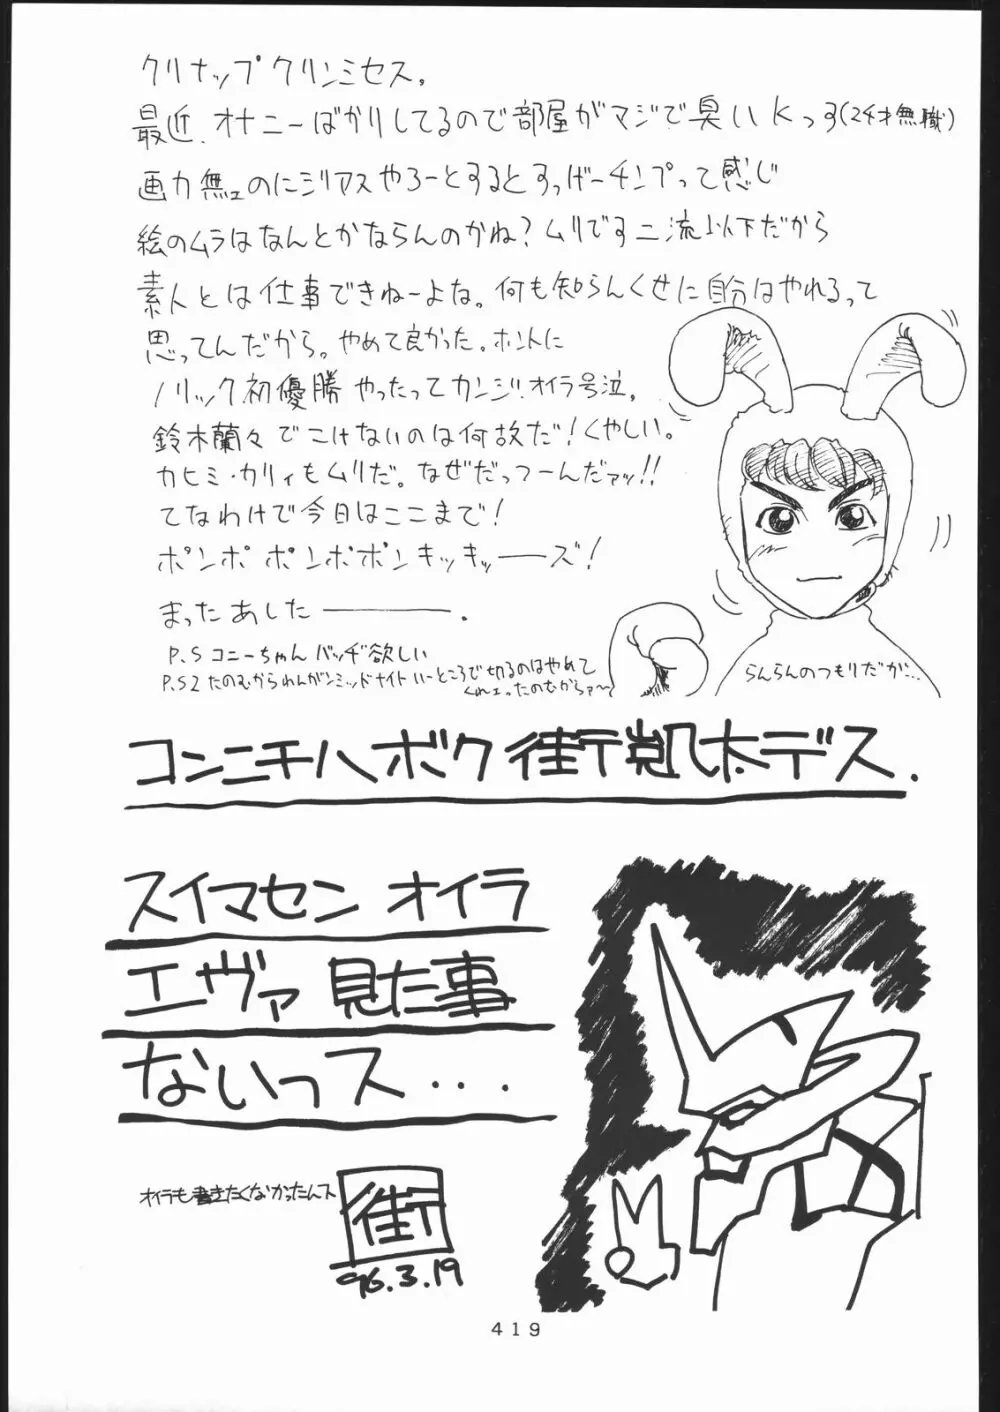 クリナップクリンミセス。
最近、オナニーばかりしてるので部屋がマジで臭いKっす(24才無職)
画力無ェのにシリアスやろーとするとすっげーチンプって感じ
絵のムラはなんとかならんのかね?ムリです二流以下だから
素人とは仕事できねーよな。何も知らんくせに自分はやれるって
思ってんだから。やめて良かった。ホントに
ノリック初優勝 やったってカンジ。オイラ号泣。
鈴木蘭々でこけないのは何故だ!くやしい。
カヒミ・カリィもムリだ。なぜだっつーんだァッ!!
てなわけで今日はここまで!
ポンポ ポンポポンキッキッーーズ!
まったあしたーーー。
P.S コニーちゃんバッヂ欲しい
P.S2 たのむからわんがんミッドナイトいーところで切るのはやめて
くれェったのむからァ〜
らんらんのつもりだが…
コンニチハボク街凱太デス.
スイマセン オイラ
エヴァ 見た事
ないっス...
オイラも書きたくなかったんス
街
'96.3.19
419